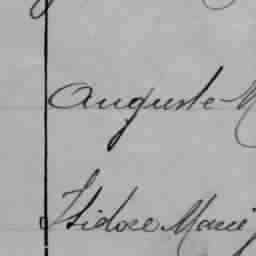 Auguste M
Isidore Marie